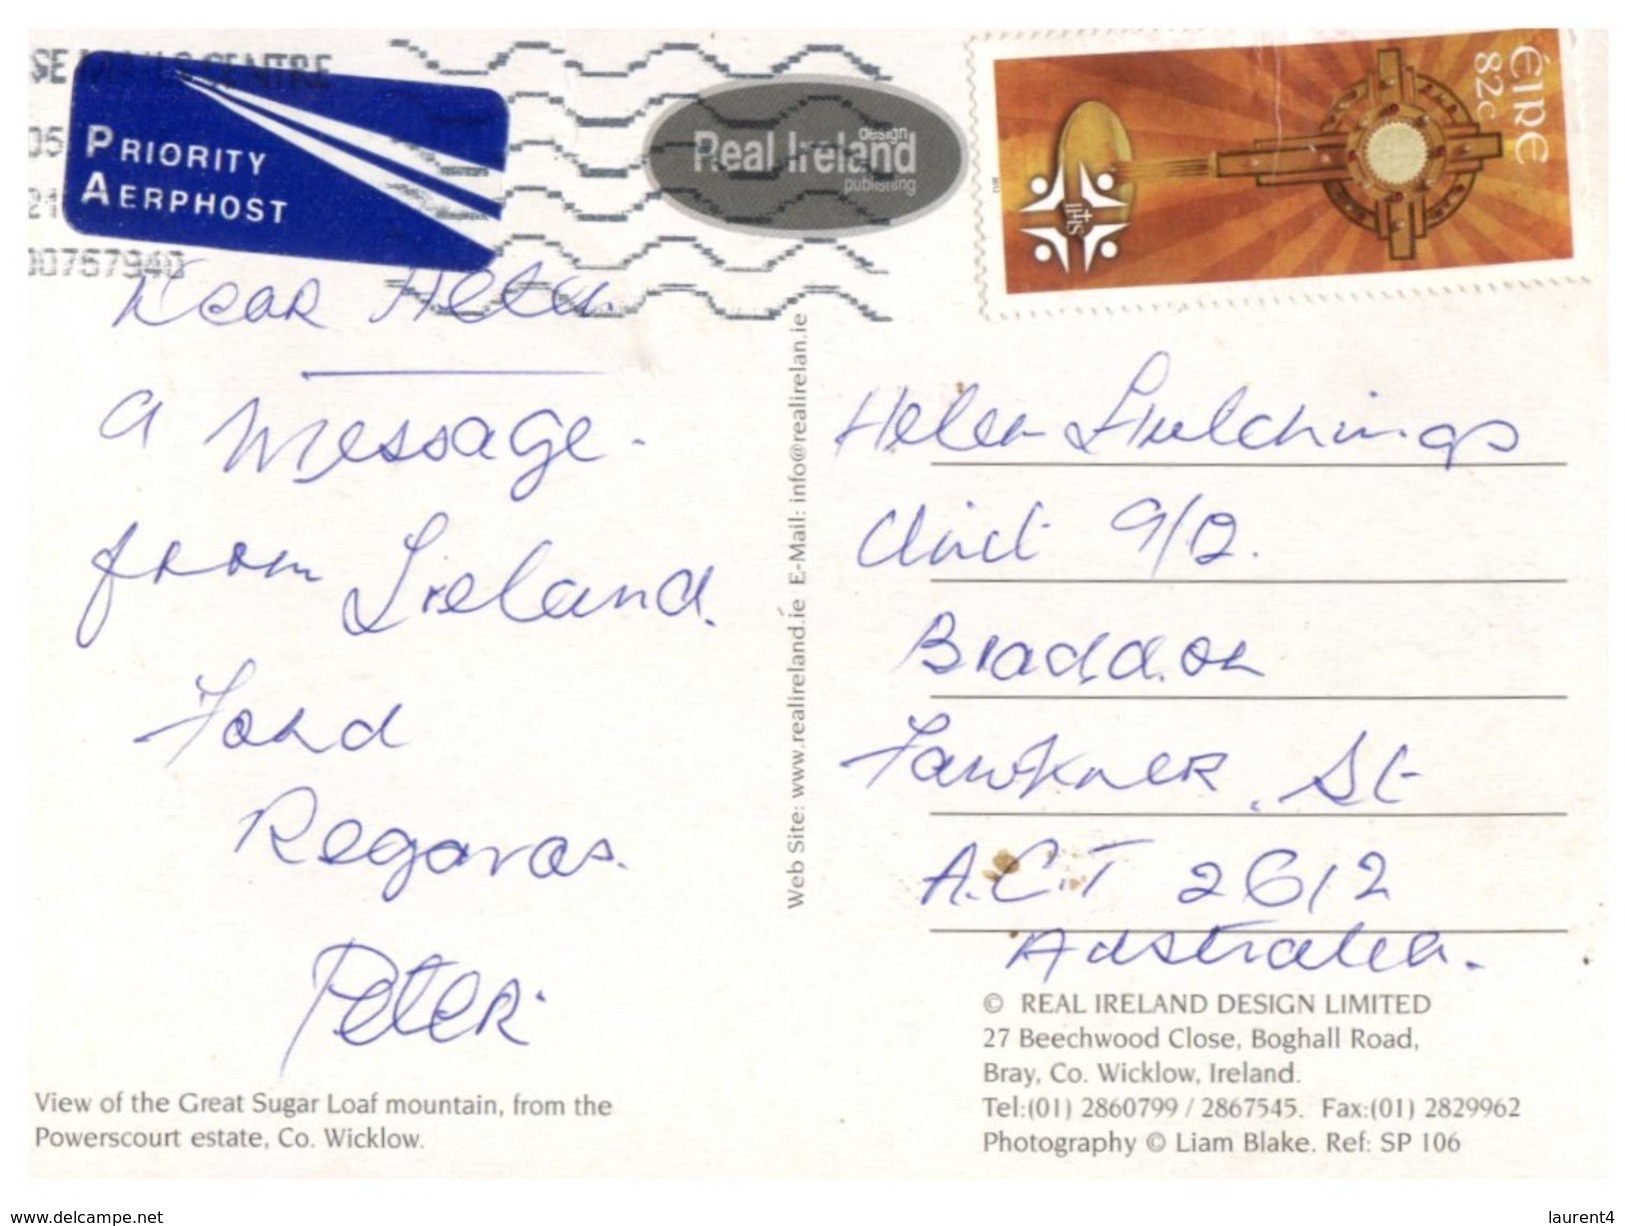 CENTRE
PRIORITY
AERPHOST
Real Ireland
design
publishing
ÉIRE
82c
IHS
Dear Helen
a Message.
from Ireland.
Fond
Regards.
Peter.
View of the Great Sugar Loaf mountain, from the
Powerscourt estate, Co. Wicklow.
Web Site: www.realireland.ie E-Mail: info@realirelan.ie
Helen Hutchings
Unit 9/2.
Braddon
Fawkner St
A.C.T 2612
Australia.
© REAL IRELAND DESIGN LIMITED
27 Beechwood Close, Boghall Road,
Bray, Co. Wicklow, Ireland.
Tel:(01) 2860799 / 2867545. Fax:(01) 2829962
Photography © Liam Blake. Ref: SP 106
www.delcampe.net
laurent4